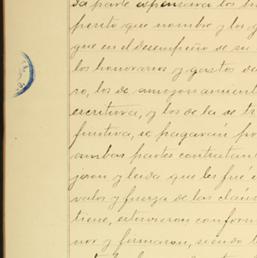 da parte abonará los ho
perito que nombre y los g
que en el desempeño de su
los honorarios y gastos de
ro, los de amojonamient
escritura, y los de la de
finitiva, se pagarán po
ambas partes contratan
jeron y leida que les fué e
valor y fuerza de las cláus
tiene, estuvieron conform
nor y firmaron, siendo t